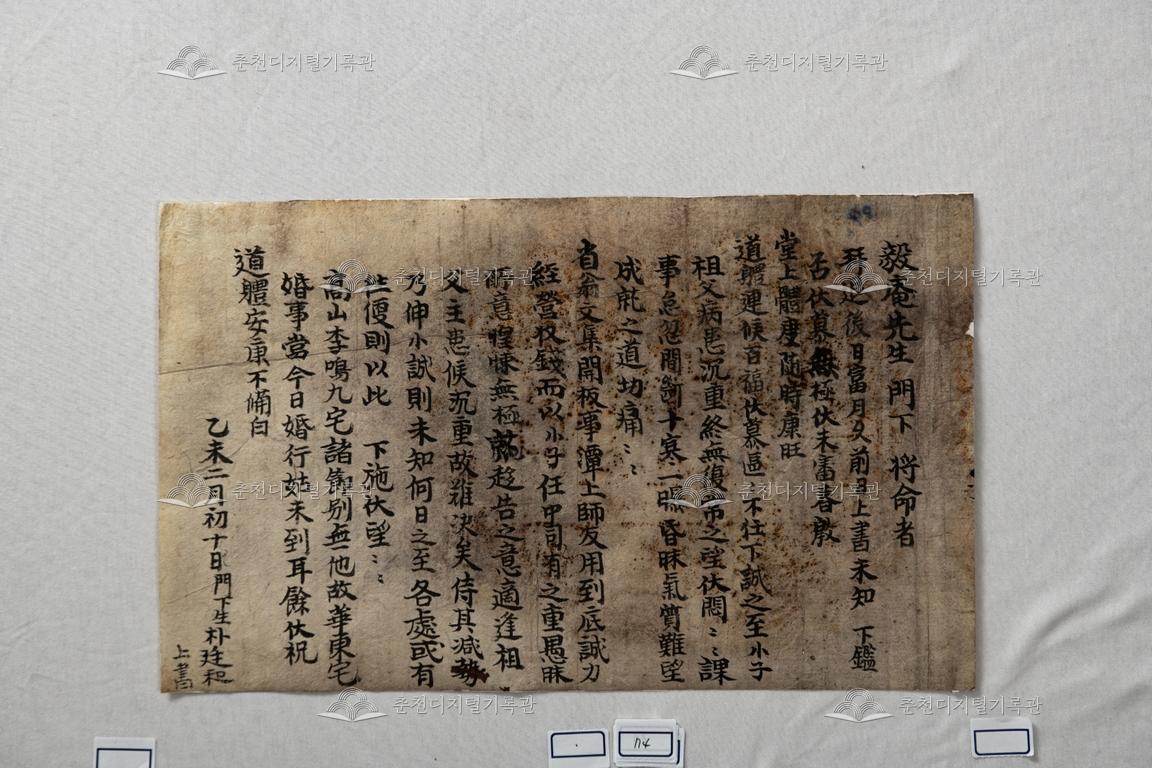 毅庵先生 門下 将命者
拜退後日富月久前日上書未知 下鑑
否伏慕無極伏未審春殷
堂上體度隨時康旺
道體連候百福伏慕區 不任下誠之至小子
祖父病患沉重終無復常之望伏悶〻〻課
事怠忽間斷十寒一曝昏昧氣質難望
成就之道切痛〻〻
省齋文集開板事潭上師友用到底誠力
經營收錢而以小子任甲司有之重愚昧
惶悚無極 趍告之意適逢祖
父主患候沉重故難決矣待其减勢
乃伸小誠則未知何日之至各處或有
便則以此 下施伏望〻〻
高山李鳴九宅諸節别無他故華東宅
婚事當今日婚行姑未到耳餘伏祝
道體安康不備白
乙未二月初十日門下生朴廷和
上書
74
춘천디지털기록관
춘천디지털기록관
춘천디지털기록관
춘천디지털기록관
춘천디지털기록관
춘천디지털기록관
춘천디지털기록관
춘천디지털기록관